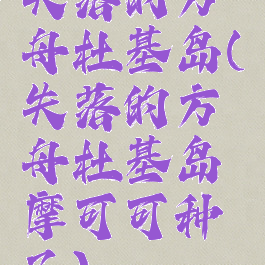 失落的方
舟杜基岛(
失落的方
舟杜基岛
摩可可种
子)